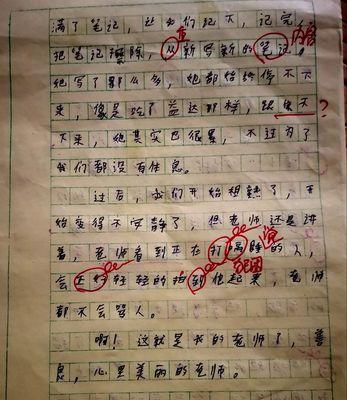 满了笔记，让我们记下，记完，
把笔记擦除，从新写新的笔记。
重
内容
他写了那么多，他都始终停不下
来，像是吃了益达那样，跟
？
下来，他其实已很累，不过为了
我们都没有休息。
过后，我们开始相熟了，开
始变得不安静了，但老师还是讲
着，老师看到正在打瞌睡的人，
会轻轻的拍到他起来，老师
都不会骂人。
啊！这就是我的老师了，善
良，心里美丽的老师。